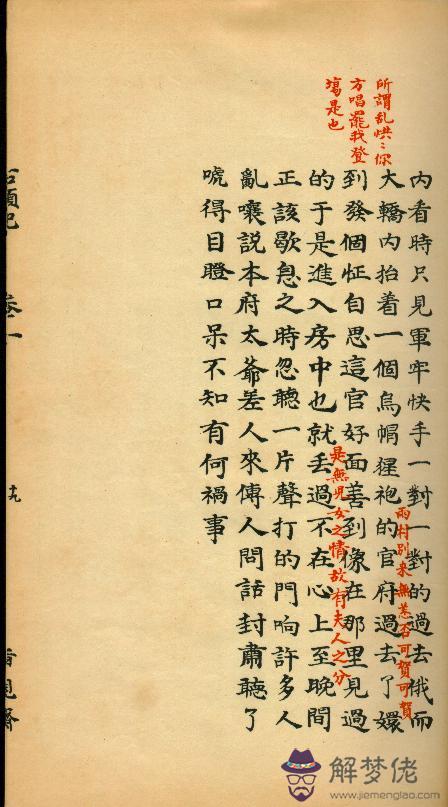 所謂乱烘〻你
方唱罷我登
塲是也
内看時只見軍牢快手一對一對的過去俄而
大轎内抬着一個烏帽猩袍的官府過去了嬛
雨村別來無恙否可賀可賀
到發個怔自思這官好面善到像在那里見過
的于是進入房中也就丢過不在心上至晚間
是無児女之情故有夫人之分
正該歇息之時忽聽一片聲打的門响許多人
亂嚷説本府太爺差人來傳人問話封肅聽了
唬得目瞪口呆不知有何禍事
石頭記
卷一
十九
脂硯齋
解梦佬
www.jiemenglao.com